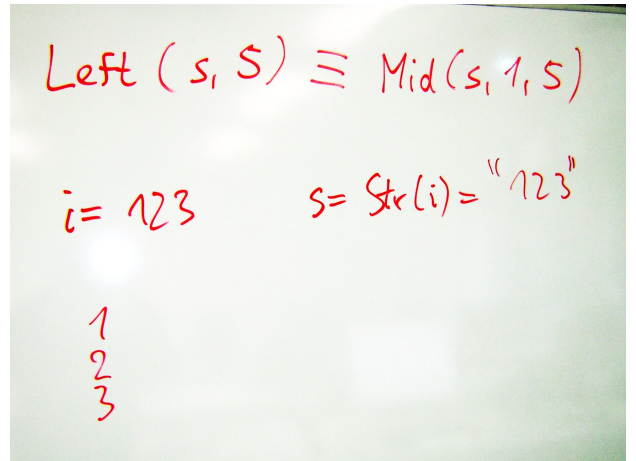 Left (s, 5) ≡ Mid(s, 1, 5)
i= 123 s= Str(i)= "123"
1
2
3